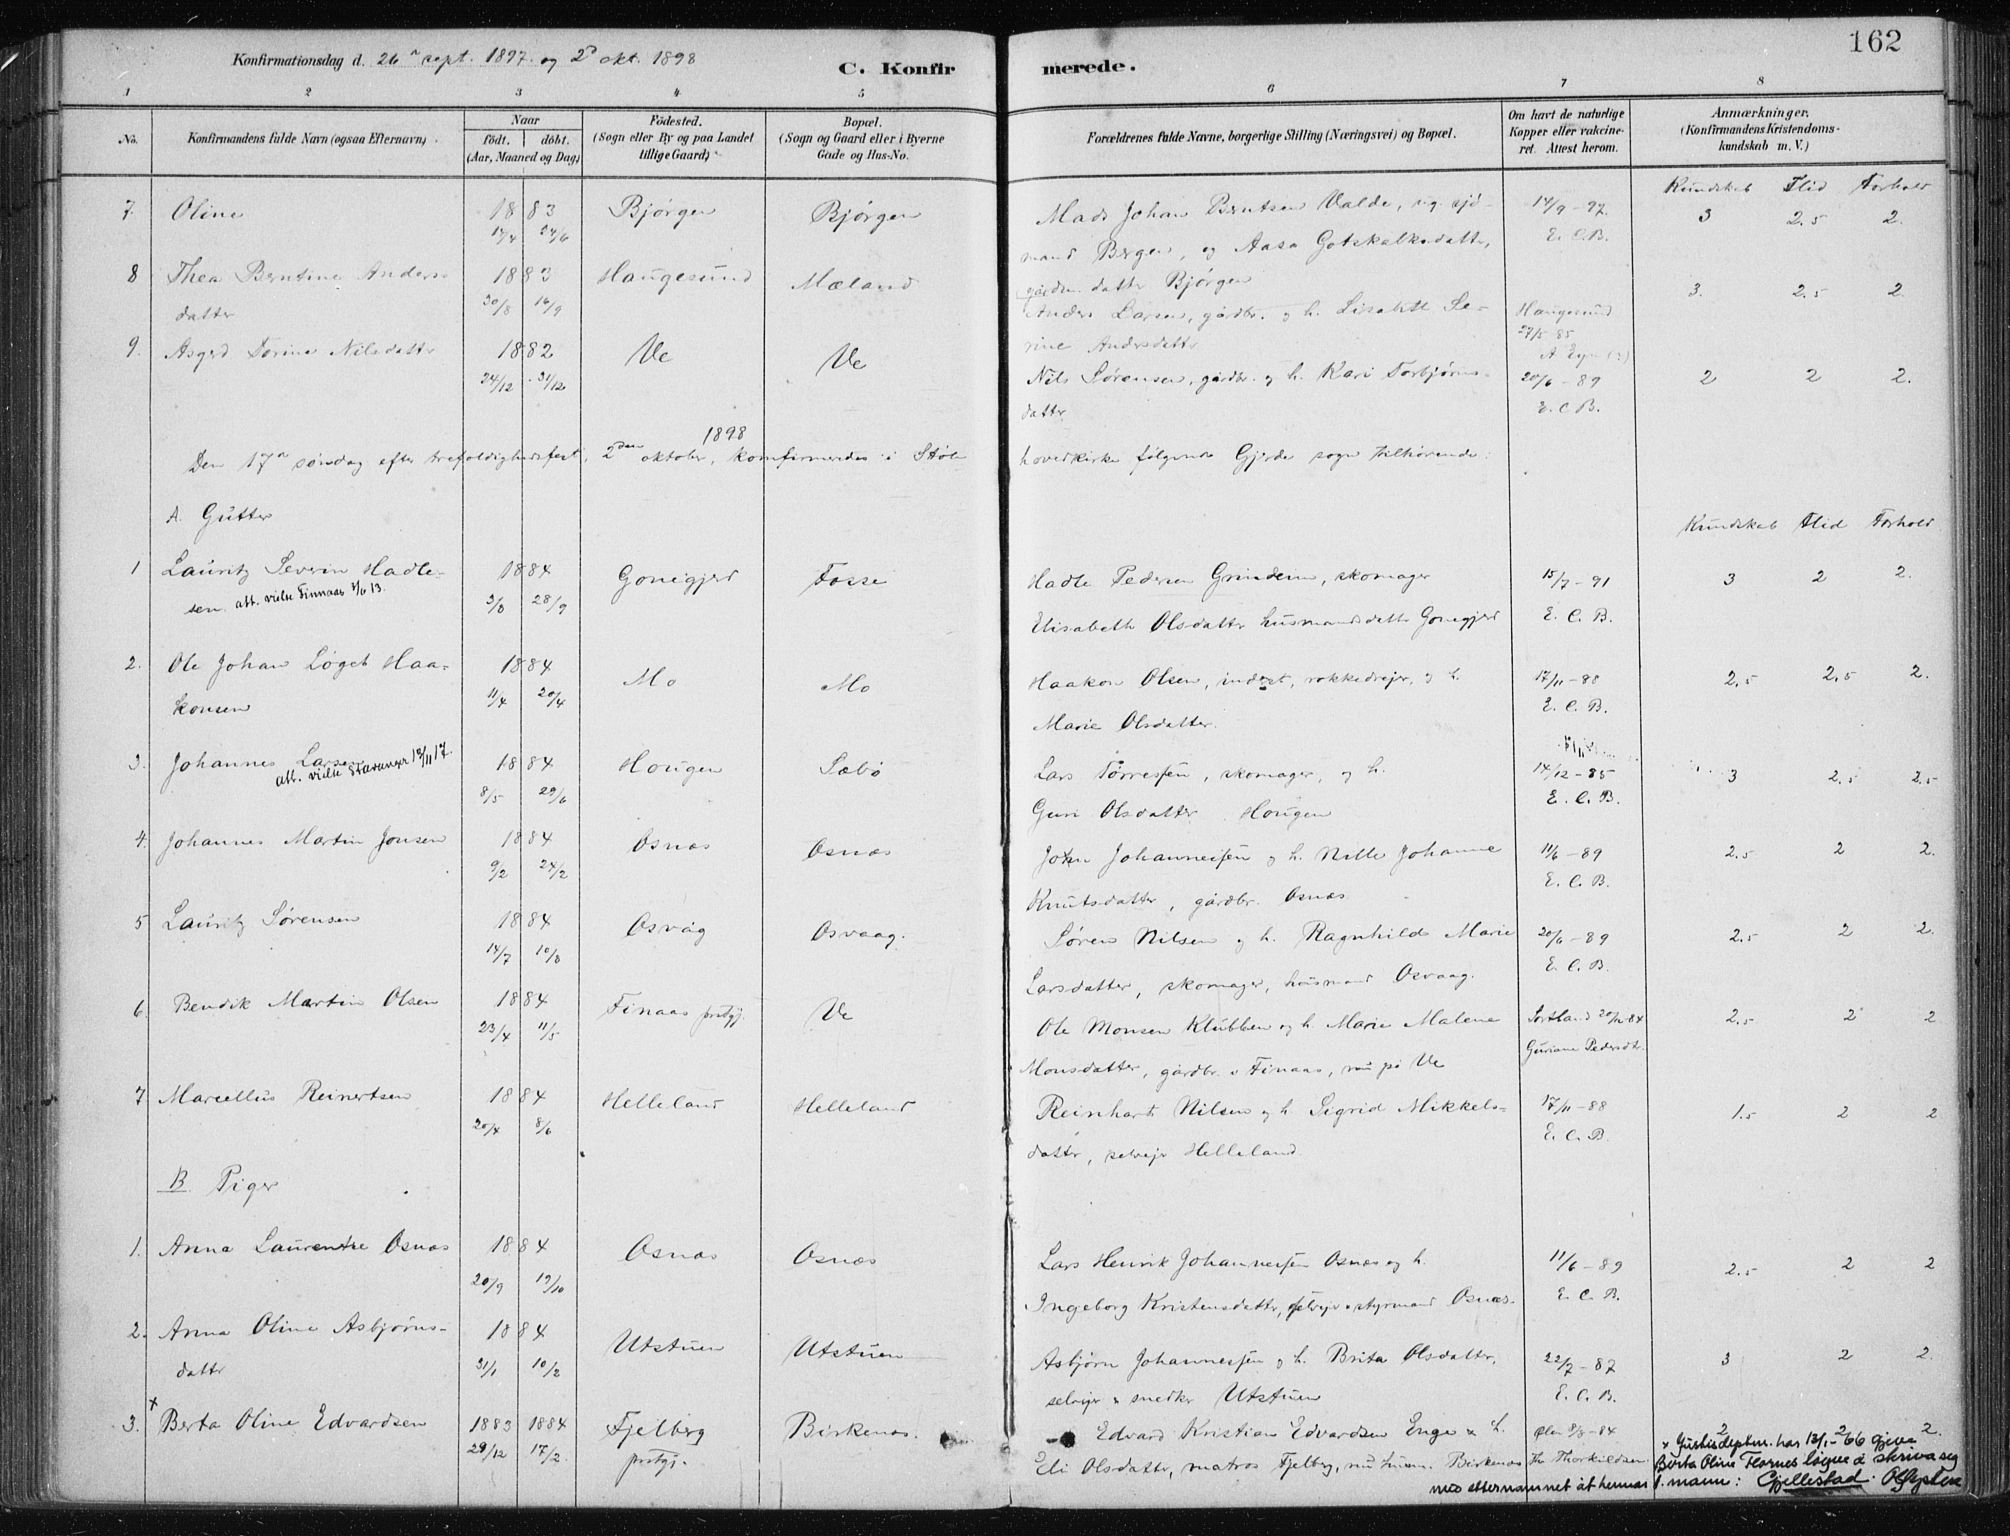 162
Konfirmationsdag d. 26 sept. 1897. og 2 okt. 1898
C. Konfirmerede.
1 2 3 4 5 6 7 8
No.
Konfirmandens fulde Navn (ogsaa Efternavn).
Naar født. døbt. (Aar, Maaned og Dag)
Fødested. (Sogn eller By og paa Landet tillige Gaard)
Bopæl. (Sogn og Gaard eller i Byerne Gade og Hus-No.
Forældrenes fulde Navne, borgerlige Stilling (Næringsvei) og Bopæl.
Om havt de naturlige Kopper eller vakcineret. Attest herom.
Anmærkninger. (Konfirmandens Kristendomskundskab m. V.)
Kundskab Flid Forhold
7 Oline 1883 17/4 24/6 Bjørgen Bjørgen
Mads Johan Berntsen Valde, ug. sjømand Bergen, og Aasa Gotskalksdatter, gårdm. datter Bjørgen
14/9-97. E. C. B. 3 2.5 2.
8 Thea Berntine Andersdatter 1883 30/8 16/9 Haugesund Mæland
Anders Larsen, gårdbr. og h. Lisabett Serine Andersdatter
Haugesund 27/5 85 3. 2.5 2.
9. Asgerd Torine Nilsdatter 1882 24/12 31/12 Ve Ve
Nils Sørensen, gårdbr. og h. Kari Torbjørnsdatter
20/6-89 E. C. B. 2 2 2.
Den 17 søndag efter trefoldighedsfest, 2den oktober, 1898 konfirmeredes i Støle hovedkirke følgende Gjerde sogn tilhørende:
A. Gutter
Kundskab Flid Forhold
1 Lauritz Severin Hadlesen. att. vielse Finnaas 3/6 13. 1884 3/8 28/9 Gonigjerd Fosse
Hadle Pedersen Grindeim, skomager
Elisabeth Olsdatter husmandsdatter Gonigjerd
15/7-91 E. C. B. 3 2 2.
2. Ole Johan Løget Haakonsen 1884 11/4 20/4 Mo Mo
Haakon Olsen, inderst, rokkedrejer, og h.
Marie Olsdatter.
17/11-88 E. C. B. 2,5 2,5 2.
3. Johannes Larsen att. vielse Stavanger 13/11 17. 1884 8/5 29/6 Hougen Sæbø
Lars Tørresjen, skomager, og h.
Guri Olsdatter Hougen
14/12-85 E. C. B. 3 2.5 2.5
4. Johannes Martin Jonsen 1884 9/2 24/2 Osnæs Osnæs
John Johannesjen og h. Nille Johanne
Knutsdatter, gårdbr. Osnæs
11/6-89 E. C. B. 2.5 2 2.
5 Lauritz Sørensen 1884 14/7 10/8 Osvåg Osvaag.
Søren Nilsen og h. Ragnhild Marie
Larsdatter, skomager, husmand Osvaag.
20/6-89 E. C. B. 2.5 2 2.
6. Bendik Martin Olsen 1884 23/4 11/5 Finaas prstgj. Ve
Ole Monsen Klubben og h. Marie Malene
Monsdatter, gårdbr. i Finaas, nu på Ve
Sortland 20/12 84 Guriane Pedersdtr. 2.5 2 2
7 Marcellus Reinertsen 1884 20/4 8/6 Helleland Helleland
Reinhart Nilsen og h. Sigrid Mikkelsdatter, selvejr Helleland.
17/11-88 E. C. B. 1.5 2 2
B Piger
1. Anna Laurentse Osnæs 1884 20/9 19/10 Osnæs Osnæs
Lars Henrik Johannesjen Osnæs og h.
Ingeborg Kristensdatter, selvejr & styrmand Osnæs.
11/6-89 E. C. B. 2.5 2 2
2. Anna Oline Asbjørnsdatter 1884 31/1 10/2 Utstuen Utstuen
Asbjørn Johannesjen og h. Brita Olsdatter,
selvejr & snedkr Utstuen
22/7-87 E. C. B. 3 2 2.
3. x Berta Oline Edvardsen 1883 29/12 1884 17/2. Fjelberg prstgj. Birkenæs.
Edvard Kristian Edvardsen Enge & h.
Eli Olsdatter, matros Fjelberg, nu husm. Birkenæs
Ølen 8/8-84 Th Thorkildsen 2 2 2.
x Justisdeptm. har 13/1-66 gjeve
Berta Oline Flornes løyve å skriva seg
med etternamnet åt hennar f. mann: Gjellestad. O Øysten